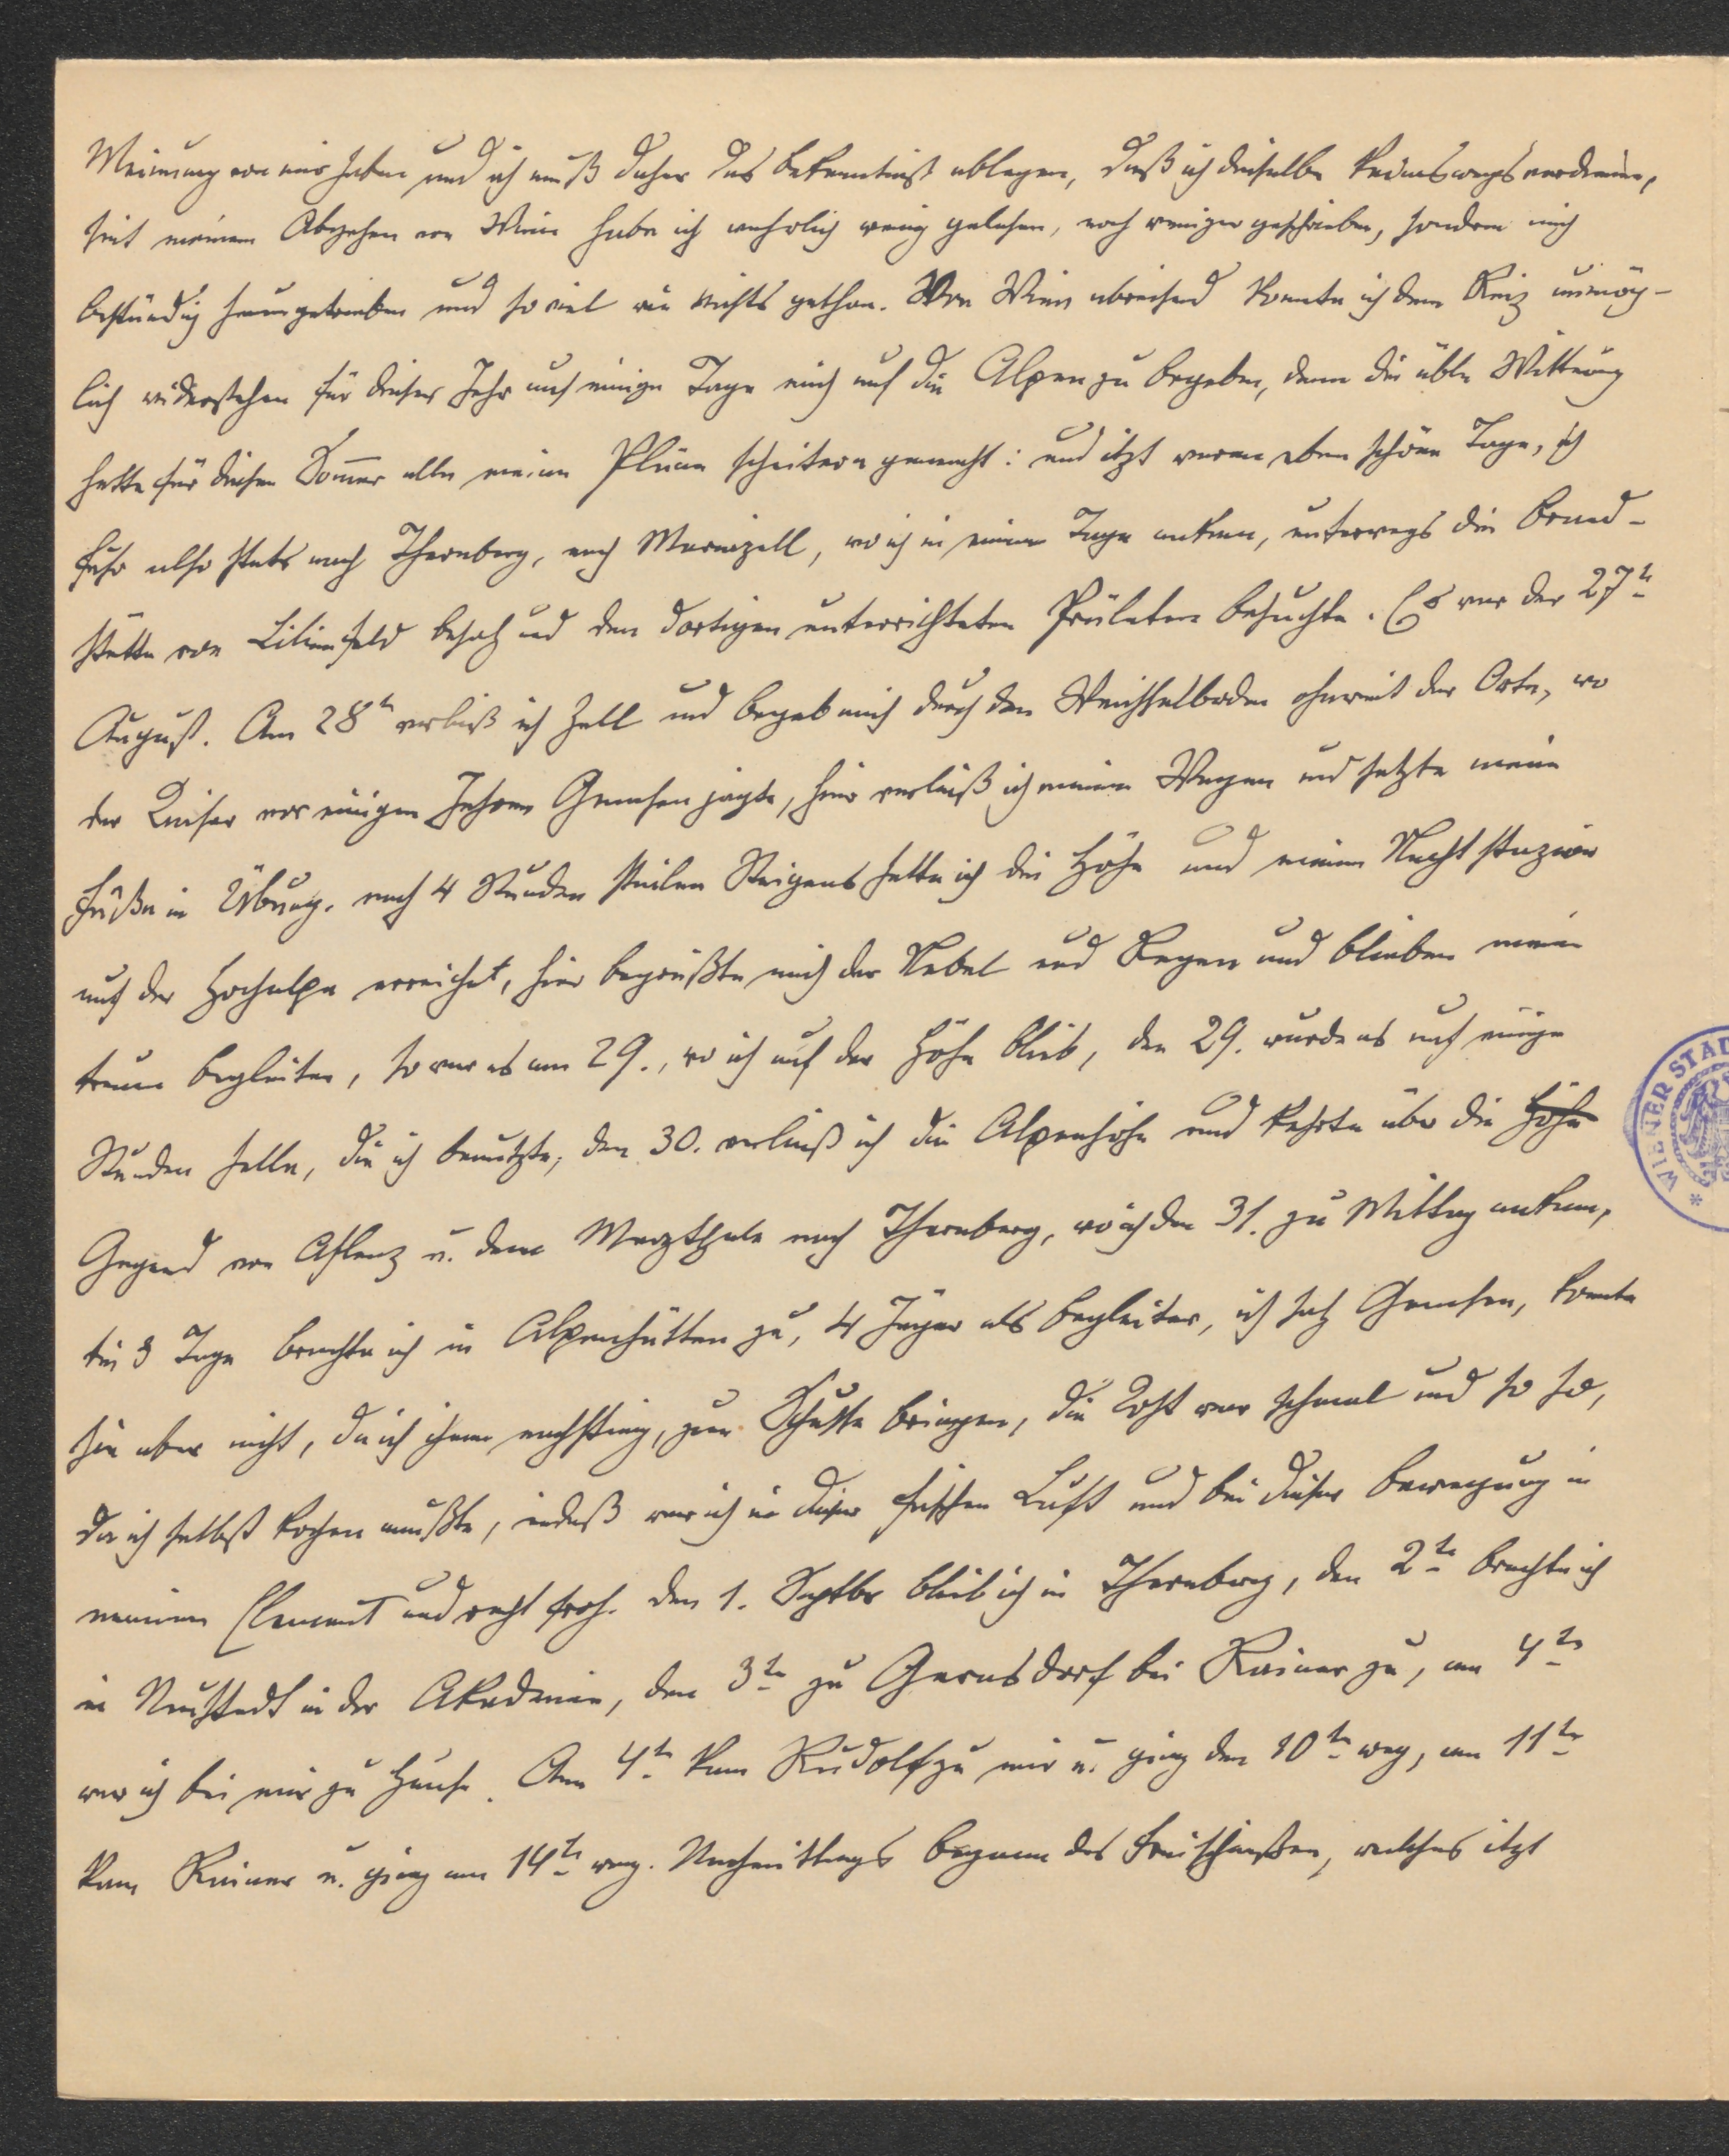 Meinung von mir haben und ich muß daher das Bekenntniß ablegen, daß ich dieselbe keineswegs verdiene,
seit meinem Abgehen von Wien habe ich wahrlich wenig gelesen, noch weniger geschrieben, sondern mich
beständig herumgetrieben und so viel wie nichts gethan. Von Wien abreisend konnte ich dem Reiz unmög-
lich widerstehen für dieses Jahr auf einige Tage mich auf die Alpen zu begeben, denn die üble Witterung
hatte für diesen Sommer alle meine Pläne scheitern gemacht: und itzt waren eben schöne Tage, ich
fuhr also statt nach Thernberg, nach Mariazell, wo ich in einem Tage ankam, unterwegs die Brand-
stätte von Lilienfeld besah und den dortigen unterrichteten Prälaten besuchte. Es war der 27te
August. Am 28ten verließ ich Zell und begab mich durch den Weichselboden ohnweit der Orte, wo
der Kaiser vor einigen Jahren Gemsen jagte, hier verließ ich meinen Wagen und setzte meine
Füße in Übung. nach 4 Stunden steilen Steigens hatte ich die Höhe und meine Nachtstazion
auf der Hochalpe erreichet, hier begrüßte mich der Nebel und Regen und blieben meine
treuen Begleiter, so war es am 29., wo ich auf der Höhe blieb, den 29. wurde es auf einige
Stunden helle, die ich benutzte, den 30. verließ ich die Alpenhöhe und kehrte über die Höhe
Gegend von Aflenz u. dem Merzthale nach Thernberg, wo ich den 31. zu Mittag ankam,
die 3 Tage brachte ich in Alpenhütten zu, 4 Jäger als Begleiter, ich sah Gemsen, konnte
sie aber nicht, da ich ihnen nachstieg, zum Schusse bringen, die Kost war schmal und so so,
da ich selbst kochen mußte, indeß war ich in dieser frischen Luft und bei dieser Bewegung in
meinem Element und recht froh. den 1. Septbr blieb ich in Thernberg, den 2te brachte ich
in Neustadt in der Akademie, den 3te zu Gernsdorf bei Rainer zu, am 4te
war ich bei mir zu Hause. Am 4te kam Rudolf zu mir u. ging den 10te weg, am 11te
kam Rainer u. ging am 14te weg. Nachmittags begann das Freischießen, welches itzt
WIENER STAD